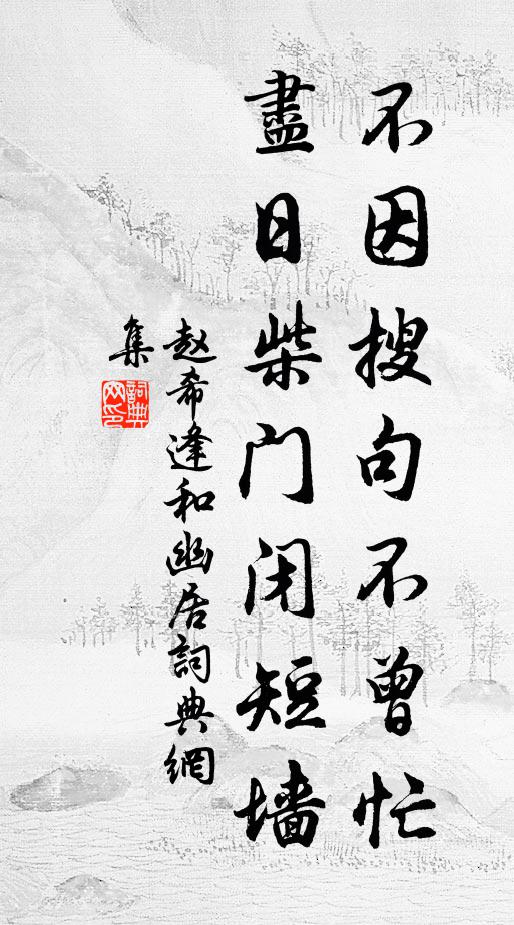 不因搜句不曾忙
盡日柴门闭短墙
赵希逢和幽居詞典網
集
詞典网印